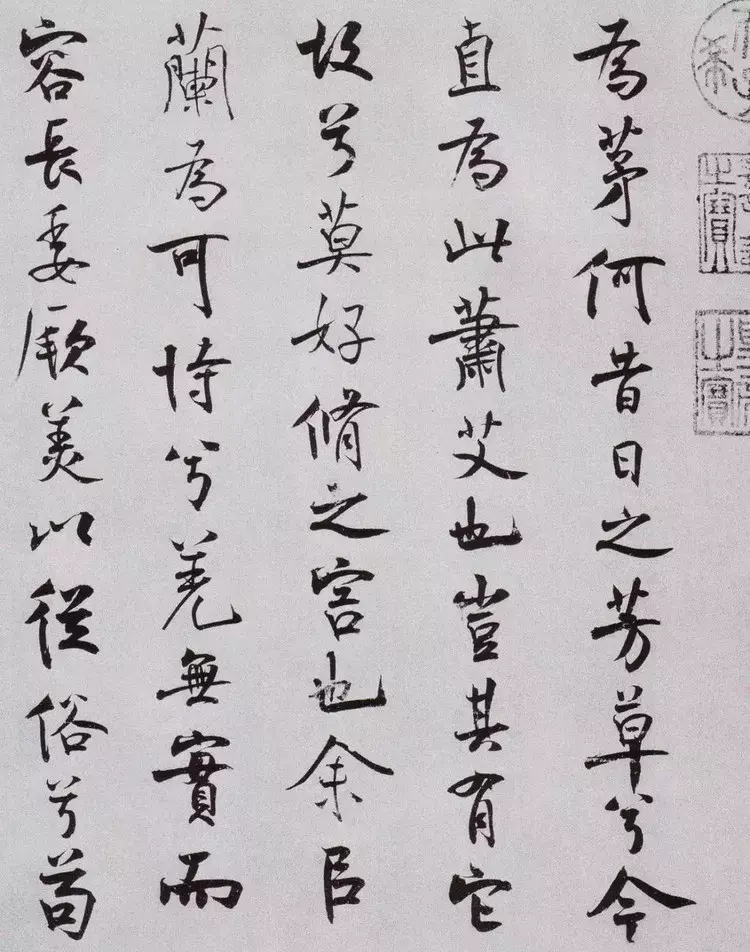 為茅何昔日之芳草兮今
直為此蕭艾也豈其有它
故兮莫好脩之害也余㠯
蘭為可恃兮羌無實而
容長委厥美以從俗兮苟